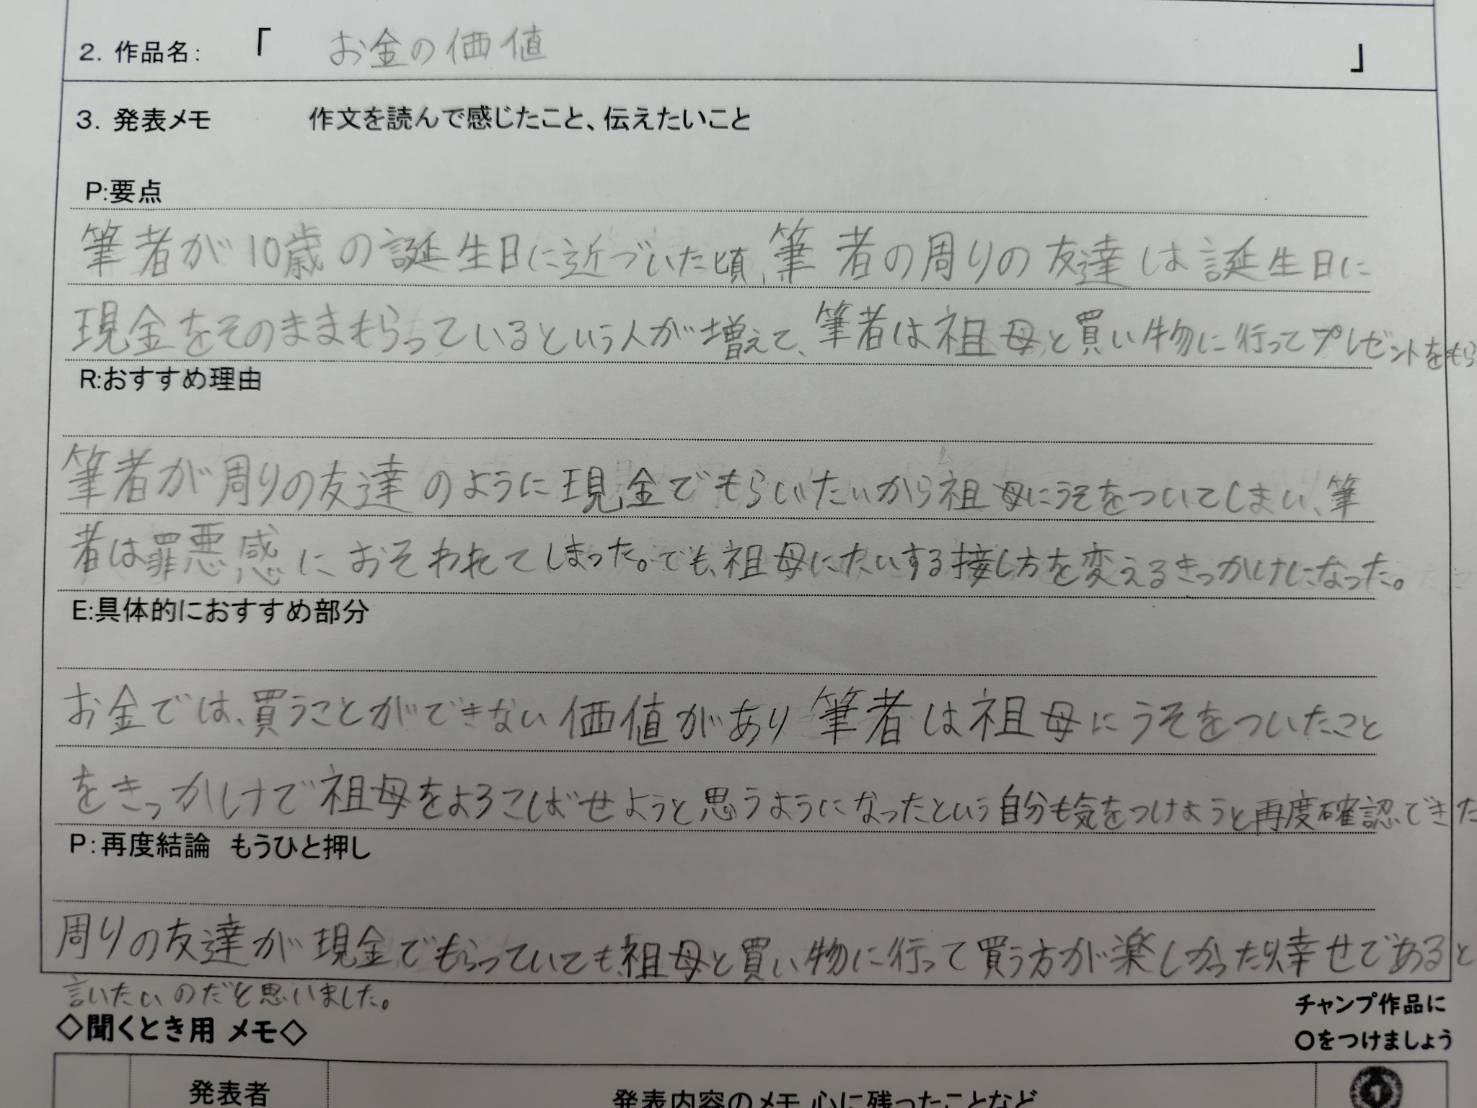 2. 作品名: 「 お金の価値 」
3. 発表メモ 作文を読んで感じたこと、伝えたいこと
P:要点
筆者が10歳の誕生日に近づいた頃、筆者の周りの友達は誕生日に
現金をそのままもらっているという人が増えて、筆者は祖母と買い物に行ってプレゼントをもら
R:おすすめ理由
筆者が周りの友達のように現金でもらいたいから祖母にうそをついてしまい、筆
者は罪悪感におそわれてしまった。でも、祖母にたいする接し方を変えるきっかけになった。
E:具体的におすすめ部分
お金では、買うことができない価値があり筆者は祖母にうそをついたこと
をきっかけで祖母をよろこばせようと思うようになったという自分も気をつけようと再度確認できた
P:再度結論 もうひと押し
周りの友達が現金でもらっていても、祖母と買い物に行って買う方が楽しかったり、幸せであると
言いたいのだと思いました。
◇聞くとき用 メモ◇
チャンプ作品に
○をつけましょう
発表者 発表内容のメモ 心に残ったことなど 1